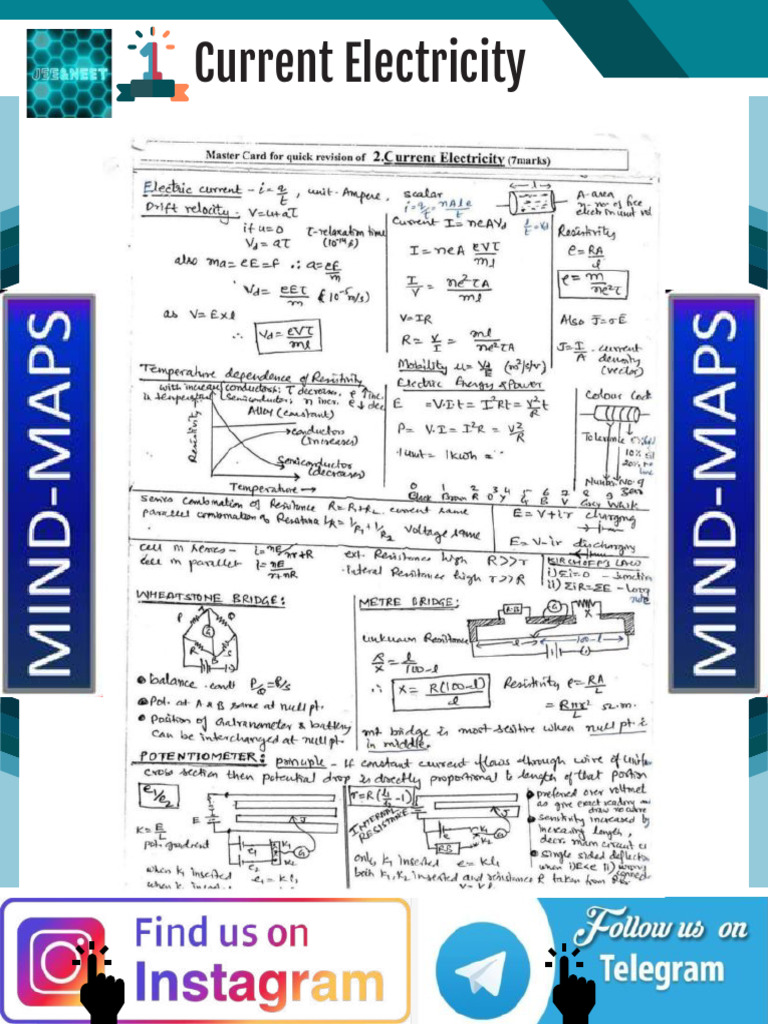 JEE&NEET
1
Current Electricity
Master Card for quick revision of 2.Current Electricity (7marks)
Electric current - i = q/t, unit-Ampere, scalar
i = q/t = nAle/t
l
A-area
n-no of free
electron unit vol
Drift velocity - V=u+aτ
if u=0 τ-relaxation time
Vd = aτ (10⁻¹⁴s)
also ma = eE = F ∴ a = eE/m
∴ Vd = eEτ/m (10⁻⁵m/s)
as V = E×l
∴ Vd = eVτ/ml
Current I = neAVd
l/t = Vd
I = neA eVτ/ml
I/V = ne²τA/ml
V=IR
R = V/I = ml/ne²τA
Mobility u = Vd/E
Resistivity
ρ = RA/l
ρ = m/ne²τ
Also J = σE
J = I/A current
density
(vector)
Temperature dependence of Resistivity
with increase conductors: τ decrease, ρ ↑ inc.
in temperature Semiconductor, n incr. ρ ↓ dec
Resistivity
Alloy (constant)
conductor
(increases)
Semiconductor
(decreases)
Temperature →
Electric Energy & Power
E = V.I.t = I²Rt = V²t/R
P = V.I = I²R = V²/R
1 unit = 1 kWh =
Colour Code
Tolerance
10%
20%
No of
Zero
0 1 2 3 4 5 6 7 8 9
Black Brown R O Y G B V Grey White
series combination of Resistance R = R₁+R₂ current same
parallel combination of Resistance 1/R = 1/R₁ + 1/R₂ voltage same
E = V + ir charging
E = V - ir discharging
cell in series - i = nE/nr+R ext. Resistance high R>>r
cell in parallel i = nE/r+nR Resistance high r>>R
KIRCHOFF'S LAW
i) Σi=0 - Junction
ii) ΣiR=ΣE - Loop
rule
WHEATSTONE BRIDGE:
P
Q
G
R
S
• balance condt P/Q = R/S
• Pot. at A & B same at null pt.
• position of Galvanometer & battery
can be interchanged at null pt.
METRE BRIDGE:
R.B
X
G
unknown Resistance
l
100-l
R/X = l/100-l
∴ X = R(100-l)/l
Resistivity ρ = RA/L
= Rπr²/L Ω.m.
mt bridge is most sesitive when null pt i
in middle.
POTENTIOMETER: principle - If constant current flows through wire of unifor
cross section then potential drop is directly proportional to length of that portion
e₁/e₂
E
K = E/L
pot. gradient
J
e₁
K₁
G
e₂
K₂
when K₁ inserted
e₁ = Kl₁
r = R(l₁/l₂ - 1)
INTERNAL
RESISTANCE
J
e
K₁
G
RB
K₂
only K₁ inserted e = Kl₁
both K₁, K₂ inserted and resistance R taken from
• preferred over voltmet
as give exact reading
draw no
• sensitivity increased by
increasing length,
• single sided deflection
MIND-MAPS
MIND-MAPS
Find us on
Instagram
Follow us on
Telegram